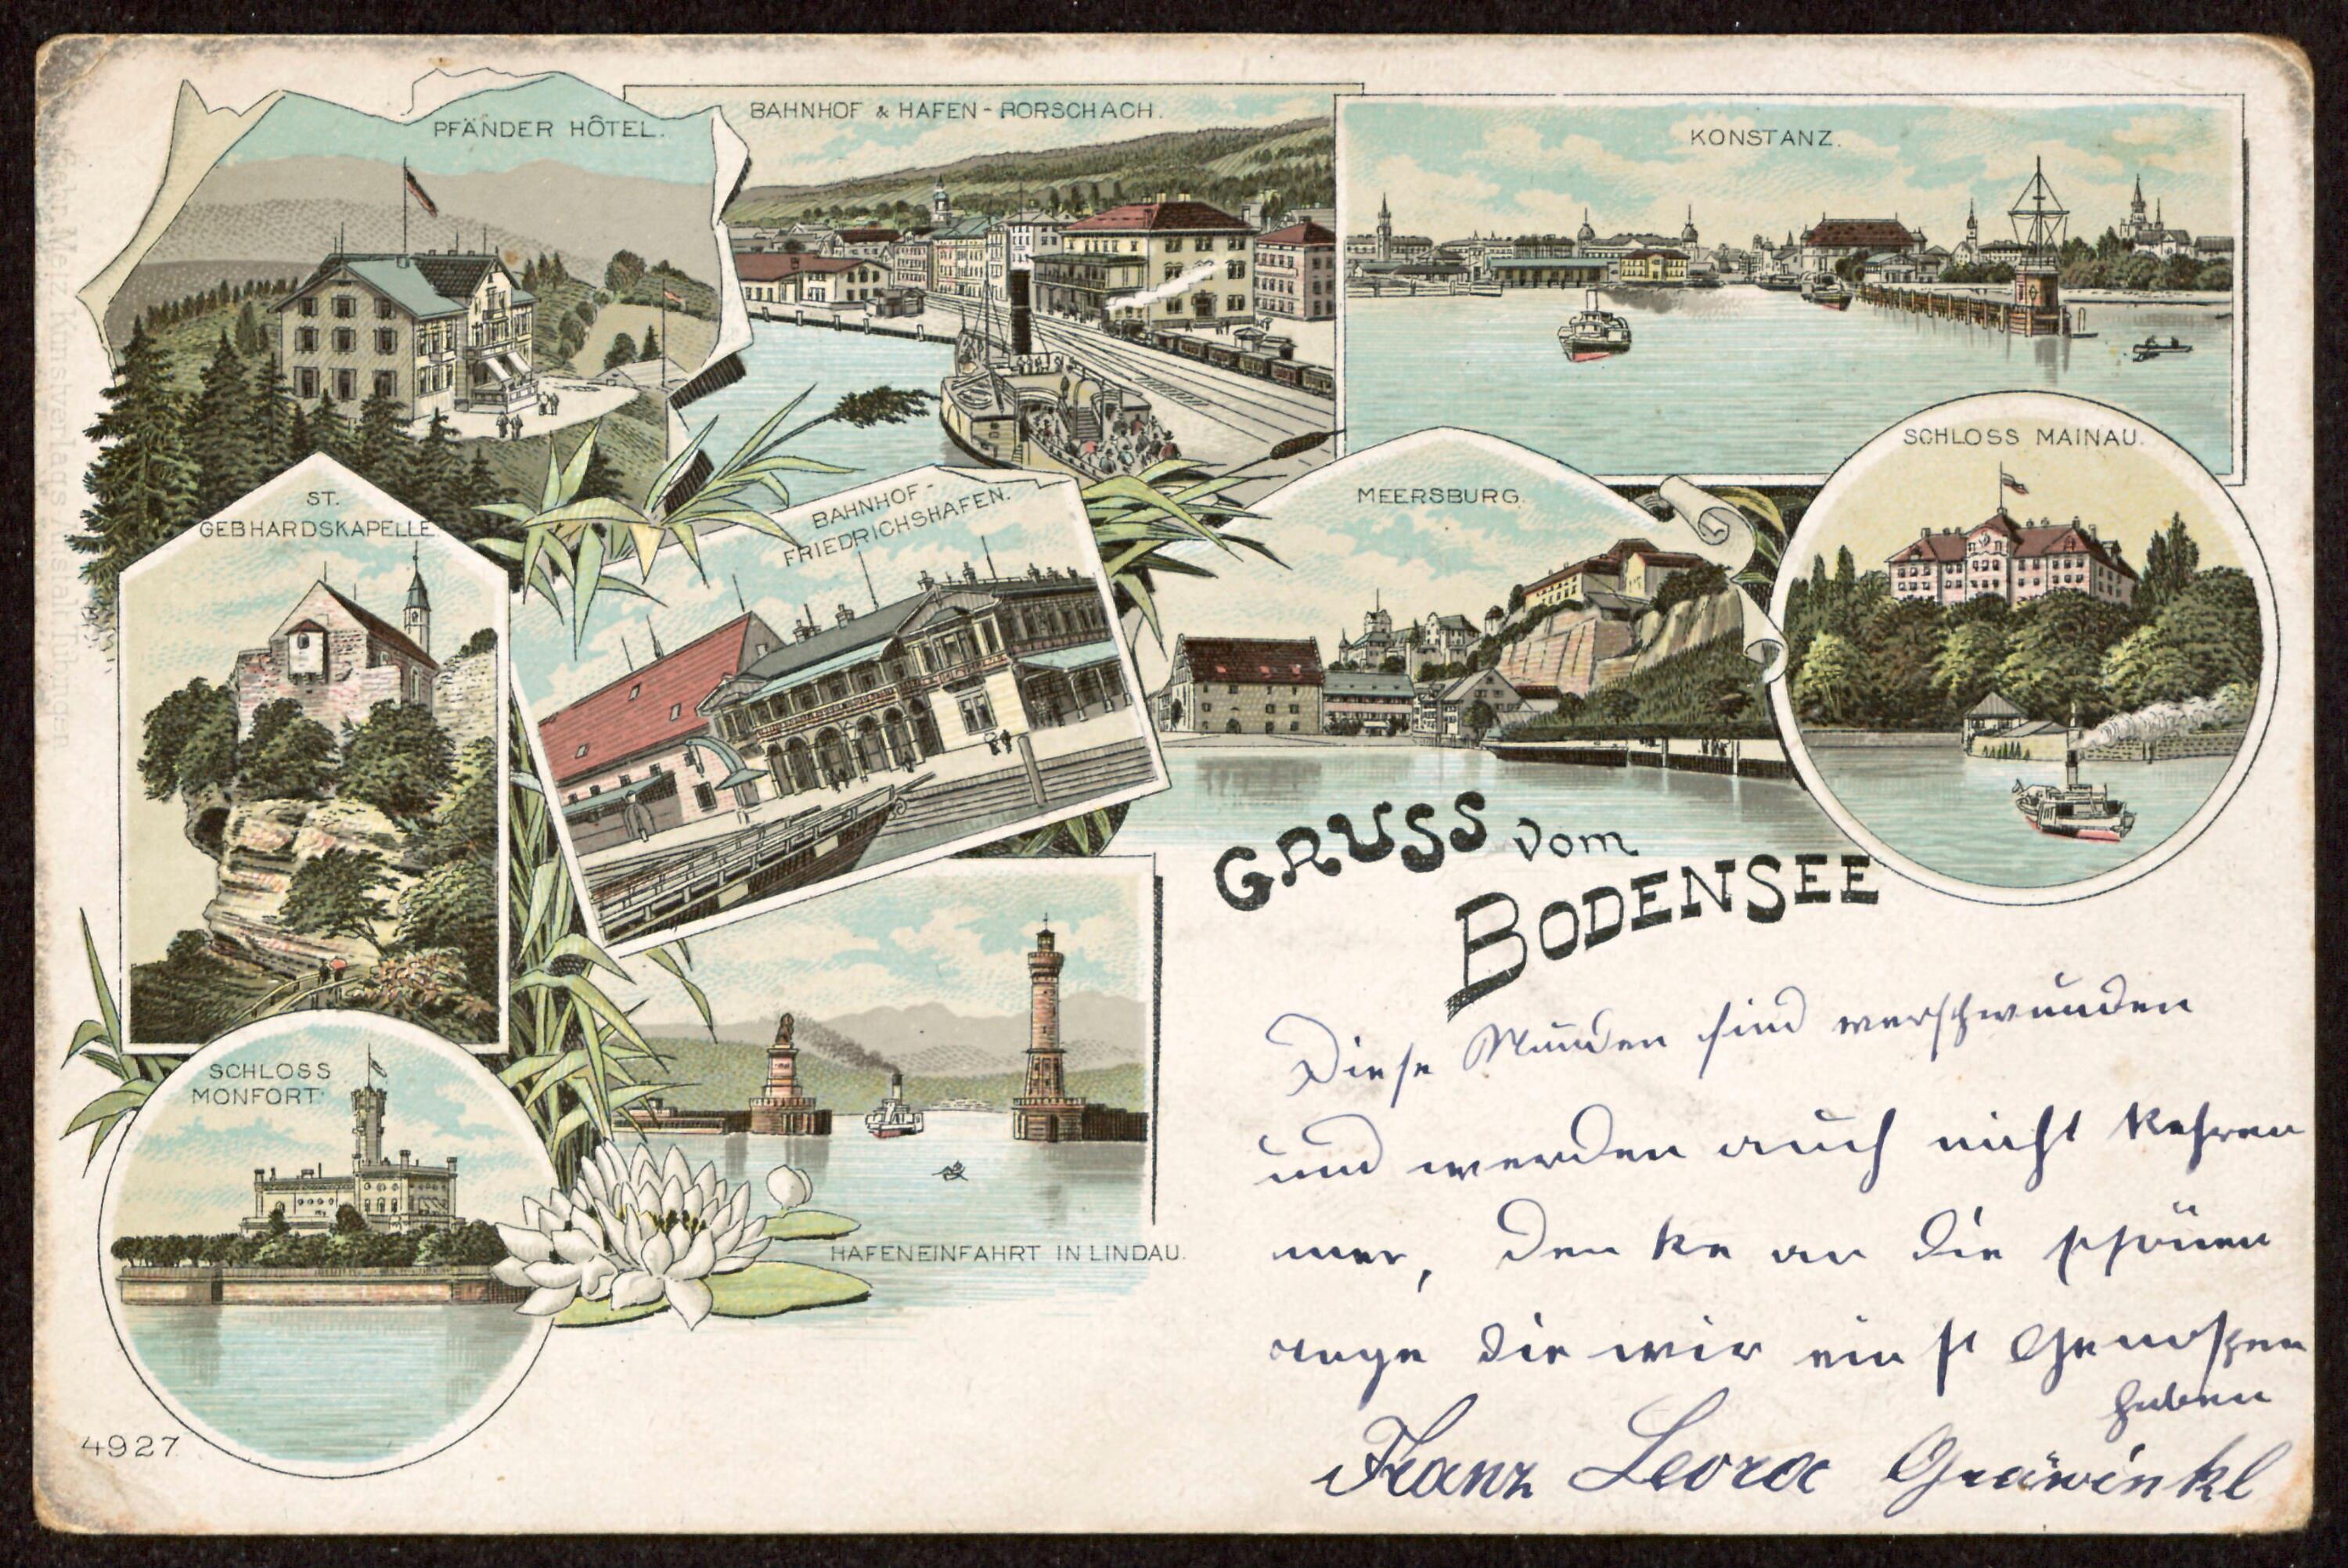 PFÄNDER HÔTEL.
BAHNHOF & HAFEN - RORSCHACH.
KONSTANZ.
SCHLOSS MAINAU.
MEERSBURG.
ST.
GEBHARDSKAPELLE
BAHNHOF-
FRIEDRICHSHAFEN.
GRUSS vom
BODENSEE
SCHLOSS
MONFORT.
HAFENEINFAHRT IN LINDAU.
Diese Stunden sind verschwunden
und werden auch nicht kehren
mer, den ke an die schönen
die wir ein st Genoßen
haben
Franz
4927
Gebr. Metz, Kunstverlags-Anstalt, Tübingen